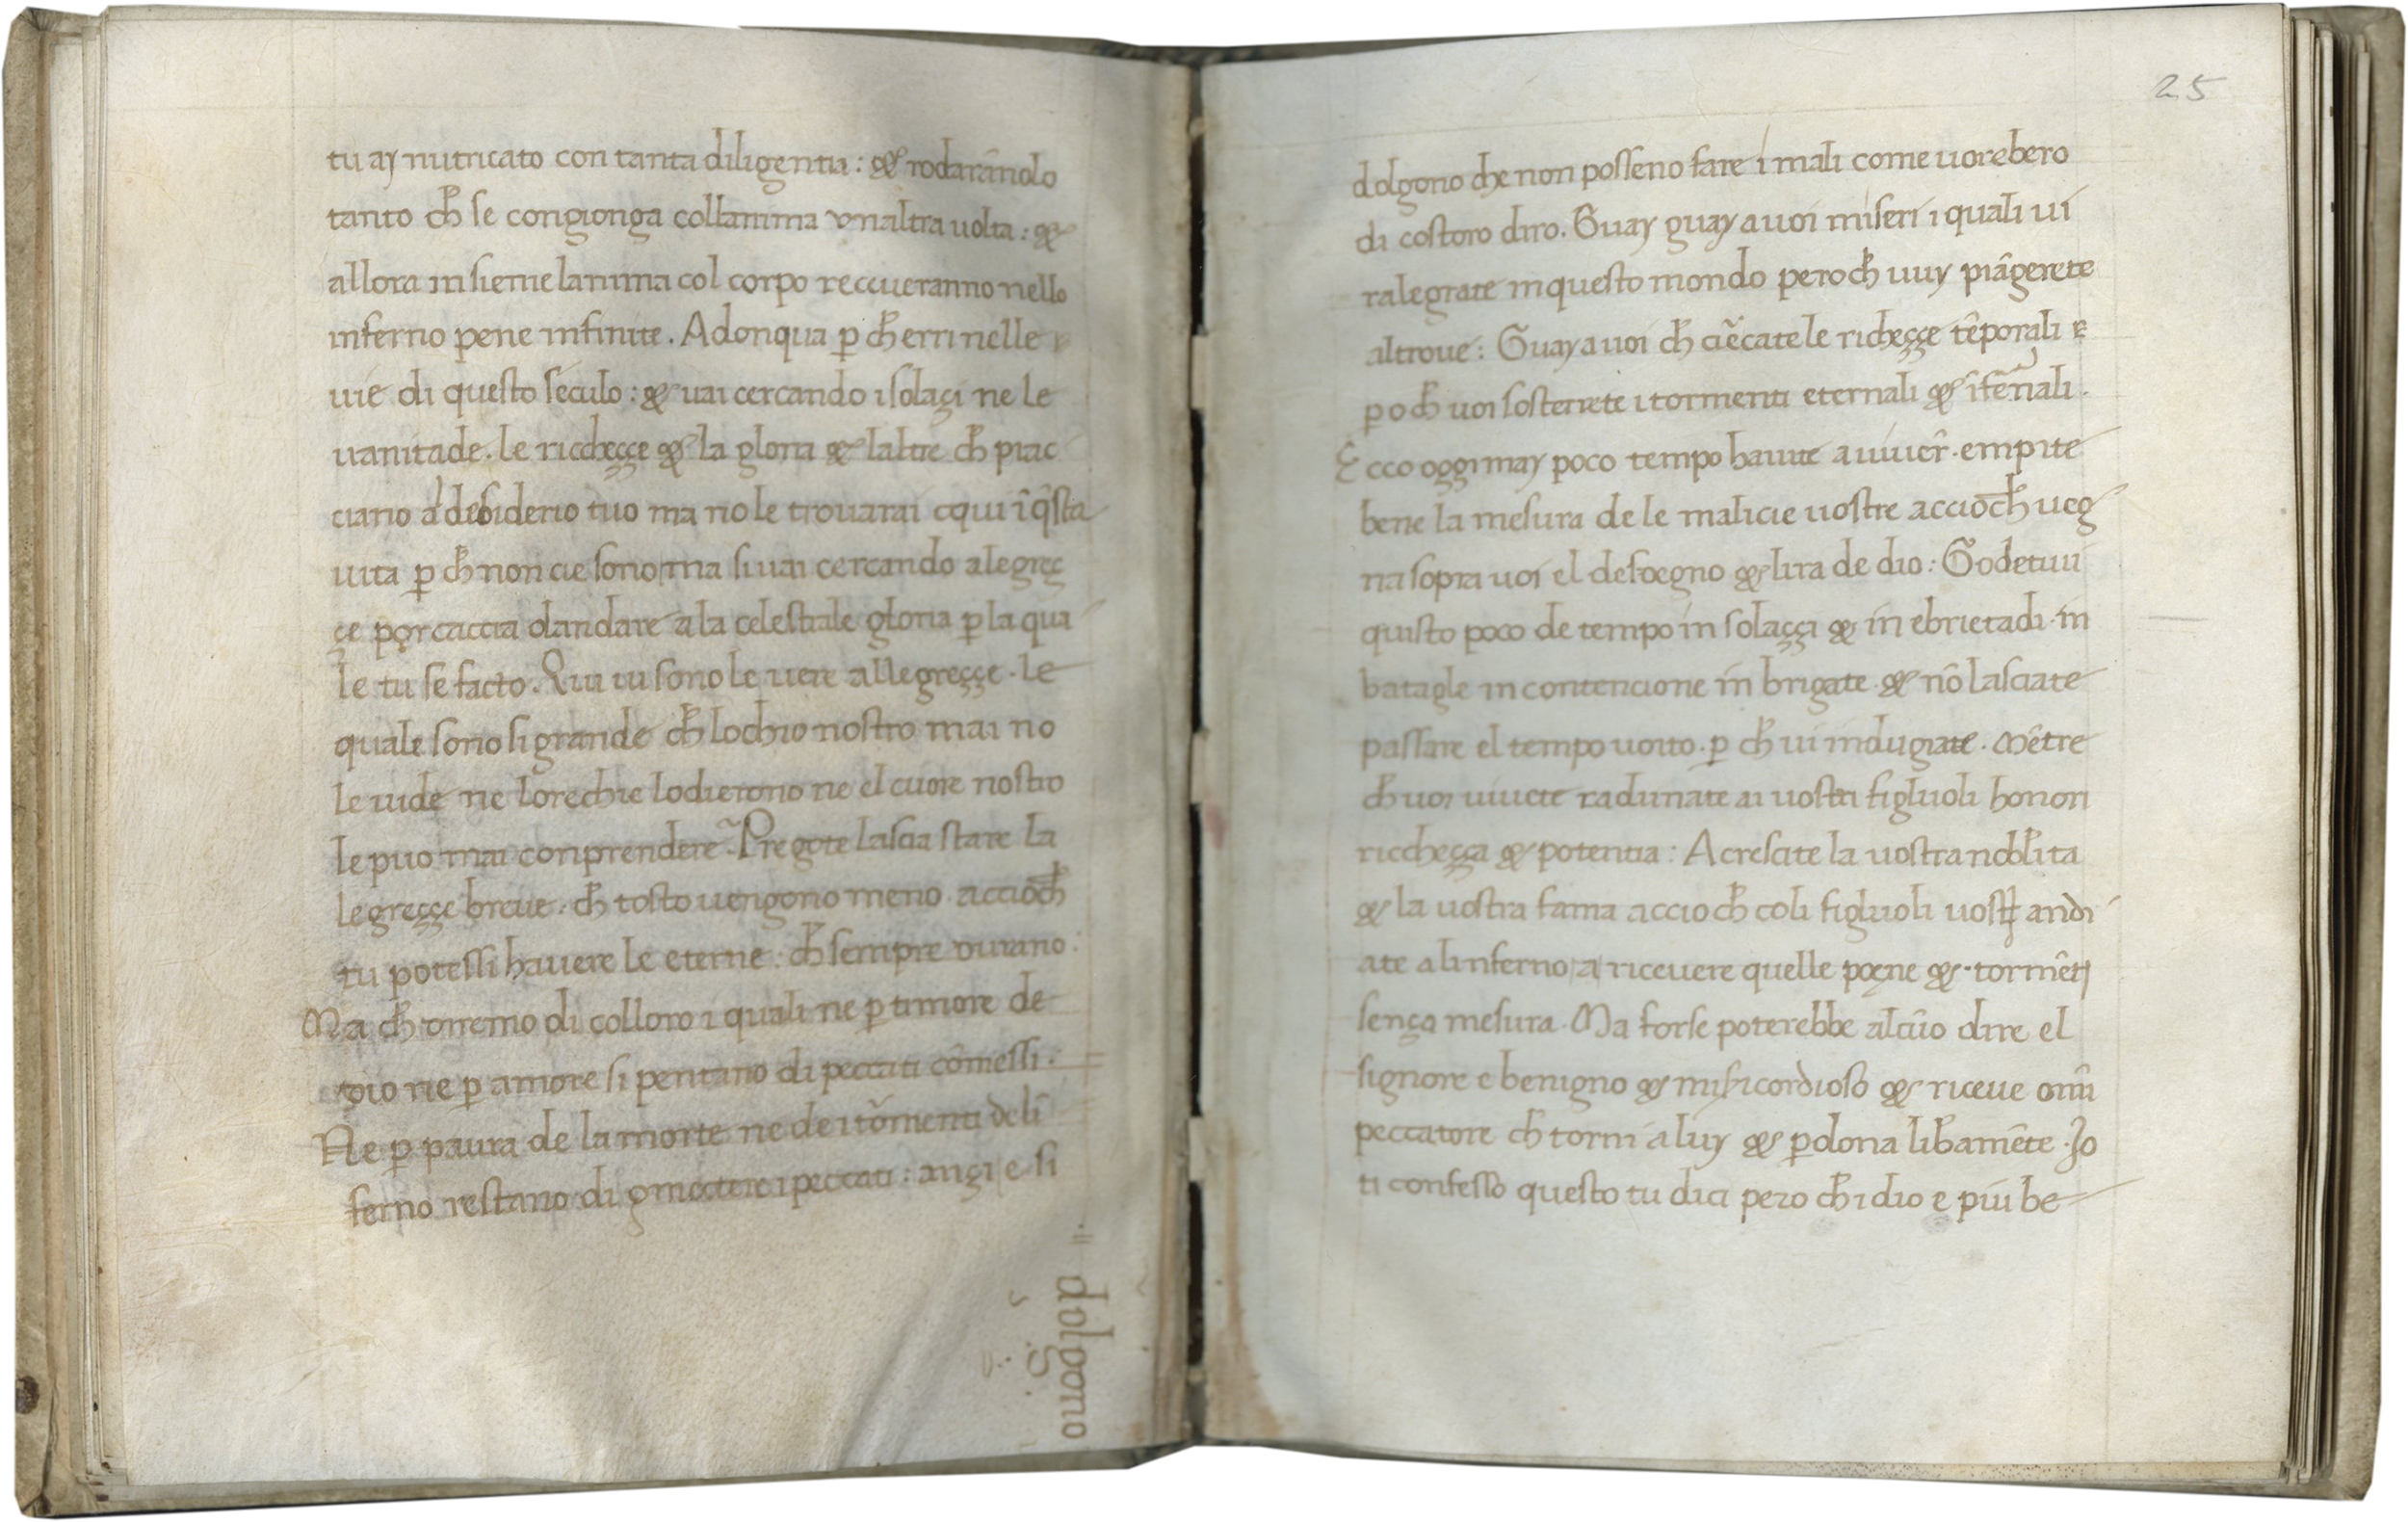 tu ay nutricato con tanta diligentia: & rodarānolo
tanto ch̄ se congionga collanima unaltra uolta: &
allora insieme lanima col corpo receueranno nello
inferno pene infinite. Adonqua p̱ ch̄ erri nelle
uie di questo seculo: & uai cercando i solaçi ne le
uanitade. le riccheççe & la gloria & laltre ch̄ piac
ciano al desiderio tuo ma no le trouarai cqui ī q̄sta
uita p̱ ch̄ non cie sono ma si uai cercando alegreç
çe porcaccia dandare a la celestiale gloria p̱ la qua
le tu se facto. Qui ui sono le uere allegreççe. le
quale sono si grande ch̄ lochio nostro mai no
le uide ne lorechie lodierono ne el cuore nostro
le puo mai conprendere. Pregote lascia stare la
legreççe breue. ch̄ tosto uengono meno accioch̄
tu potessi hauere le eterne: ch̄ sempre durano:
Ma ch̄ diremo di colloro i quali ne p̱ timore de
dio ne p̱ amore si pentano di peccati cōmessi.
Ne p̱ paura de la morte ne de i tōmenti deli
ferno restano di gmectere i peccati: ançi e si
dolgono
25
dolgono che non posseno fare i mali come uorebero
di costoro diro. Guay guay a uoi miseri i quali ui
ralegrate in questo mondo peroch̄ uuy piāgerete
altroue: Guay a uoi ch̄ ciēcate le richeççe tēporali
p̱och̄ uoi sosterrete i tormenti eternali & īfērnali.
Ecco oggimay poco tempo hauite a uiuer̄. empite
bene la mesura de le malicie uostre accioch̄ ueg
na sopra uoi el desdegno & lira de dio: Godetiui
quisto poco de tempo in solaççi & in ebrietadi. in
batagle in contencione in brigate & nō lasciate
passare el tempo uoito. p̱ ch̄ ui indugiate. Mētre
ch̄ uoi uiuete radunate ai uostri figluoli honori
riccheçça & potentia: Acrescite la uostra nobilita
& la uostra fama accioch̄ coli figluoli uostꝝ andi
ate alinferno a riceuere quelle poene & tormētj
sença mesura. Ma forse poterebbe alcūo dire el
signore e benigno & misicordioso & riceue omī
peccatore ch̄ torni a luy & p̱dona lib̄amēte. Jo
ti confesso questo tu dici pero ch̄ idio e piu be